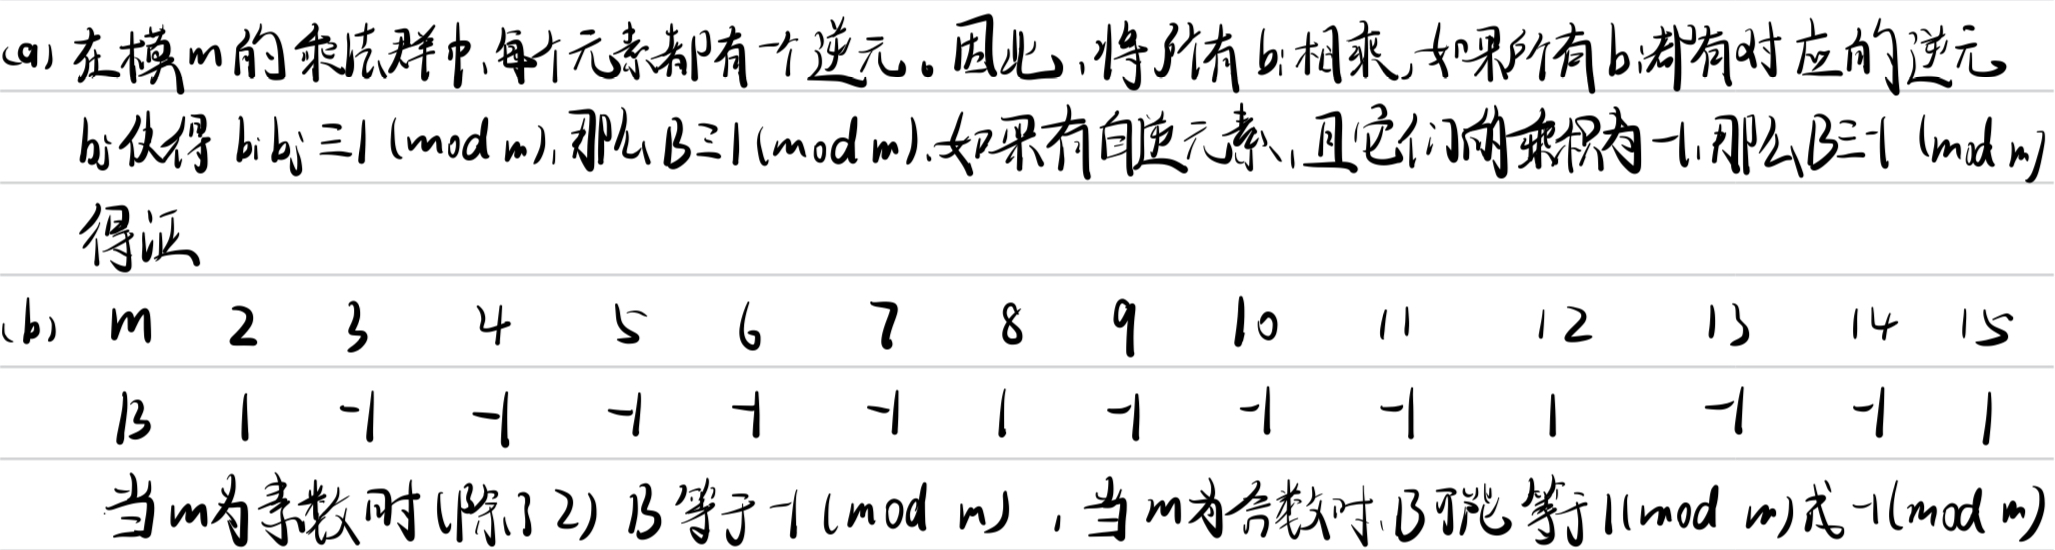 (a) 在模m的乘法群中,每个元素都有一个逆元。因此,将所有bi相乘,如果所有bi都有对应的逆元
bj使得 bibj≡1 (mod m),那么B≡1(mod m).如果有自逆元素,且它们的乘积为-1,那么B≡-1 (mod m)
得证
(b) m 2 3 4 5 6 7 8 9 10 11 12 13 14 15
B 1 -1 -1 -1 -1 -1 1 -1 -1 -1 1 -1 -1 1
当m为素数时(除了2) B等于-1 (mod m) ,当m为合数时,B可能等于1(mod m)或-1(mod m)